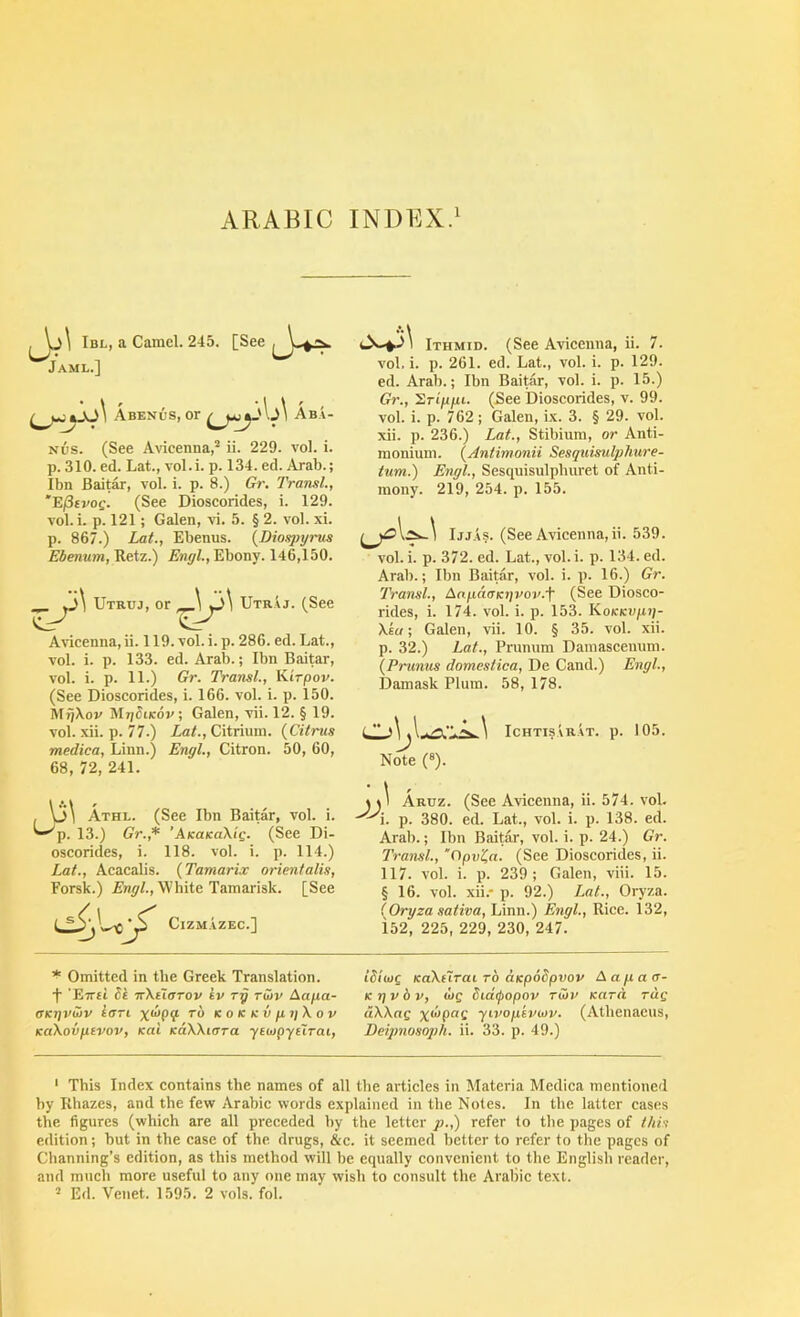 ARABIC INDEX.¹
إبل IBL, a Camel. 245. [See جمل
JAML.]
آبنوس ÁBENÚS, or آبانوس ÁBÁ-
NÚS. (See Avicenna,² ii. 229. vol. i.
p. 310. ed. Lat., vol. i. p. 134. ed. Arab.;
Ibn Baitár, vol. i. p. 8.) Gr. Transl.,
Ἔβενος. (See Dioscorides, i. 129.
vol. i. p. 121; Galen, vi. 5. § 2. vol. xi.
p. 867.) Lat., Ebenus. (Diospyrus
Ebenum, Retz.) Engl., Ebony. 146,150.
أترج UTRUJ, or أتراج UTRÁJ. (See
Avicenna, ii. 119. vol. i. p. 286. ed. Lat.,
vol. i. p. 133. ed. Arab.; Ibn Baitar,
vol. i. p. 11.) Gr. Transl., Κίτρον.
(See Dioscorides, i. 166. vol. i. p. 150.
Μῆλον Μηδικόν; Galen, vii. 12. § 19.
vol. xii. p. 77.) Lat., Citrium. (Citrus
medica, Linn.) Engl., Citron. 50, 60,
68, 72, 241.
أثل ÁTHL. (See Ibn Baitár, vol. i.
p. 13.) Gr.,* Ἀκακαλίς. (See Di-
oscorides, i. 118. vol. i. p. 114.)
Lat., Acacalis. (Tamarix orientalis,
Forsk.) Engl., White Tamarisk. [See
كزمازك CIZMÁZEC.]
إثمد ITHMID. (See Avicenna, ii. 7.
vol. i. p. 261. ed. Lat., vol. i. p. 129.
ed. Arab.; Ibn Baitár, vol. i. p. 15.)
Gr., Στίμμι. (See Dioscorides, v. 99.
vol. i. p. 762; Galen, ix. 3. § 29. vol.
xii. p. 236.) Lat., Stibium, or Anti-
monium. (Antimonii Sesquisulphure-
tum.) Engl., Sesquisulphuret of Anti-
mony. 219, 254. p. 155.
إجاص IJJÁṣ. (See Avicenna, ii. 539.
vol. i. p. 372. ed. Lat., vol. i. p. 134. ed.
Arab.; Ibn Baitár, vol. i. p. 16.) Gr.
Transl., Δαμάσκηνον.† (See Diosco-
rides, i. 174. vol. i. p. 153. Κοκκυμη-
λέα; Galen, vii. 10. § 35. vol. xii.
p. 32.) Lat., Prunum Damascenum.
(Prunus domestica, De Cand.) Engl.,
Damask Plum. 58, 178.
اختصارات ICHTIṣÁRÁT. p. 105.
Note (⁸).
أرز ÁRUZ. (See Avicenna, ii. 574. vol.
i. p. 380. ed. Lat., vol. i. p. 138. ed.
Arab.; Ibn Baitár, vol. i. p. 24.) Gr.
Transl., Ὄρυζα. (See Dioscorides, ii.
117. vol. i. p. 239; Galen, viii. 15.
§ 16. vol. xii. p. 92.) Lat., Oryza.
(Oryza sativa, Linn.) Engl., Rice. 132,
152, 225, 229, 230, 247.
* Omitted in the Greek Translation.
† Ἐπεὶ δὲ πλεῖστον ἐν τῇ τῶν Δαμα-
σκηνῶν ἐστι χώρᾳ τὸ κοκκύμηλον
καλούμενον, καὶ κάλλιστα γεωργεῖται,
ἰδίως καλεῖται τὸ ἀκρόδρυον Δαμασ-
κηνόν, ὡς διάφορον τῶν κατὰ τὰς
ἄλλας χώρας γινομένων. (Athenaeus,
Deipnosoph. ii. 33. p. 49.)
¹ This Index contains the names of all the articles in Materia Medica mentioned
by Rhazes, and the few Arabic words explained in the Notes. In the latter cases
the figures (which are all preceded by the letter p.,) refer to the pages of this
edition; but in the case of the drugs, &c. it seemed better to refer to the pages of
Channing's edition, as this method will be equally convenient to the English reader,
and much more useful to any one may wish to consult the Arabic text.
² Ed. Venet. 1595. 2 vols. fol.